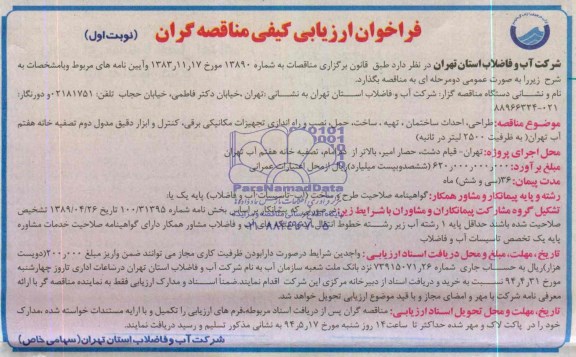 فراخوان ارزیابی کیفی مناقصه گران
(نوبت اول)
شرکت آب و فاضلاب استان تهران در نظر دارد طبق قانون برگزاری مناقصات به شماره ۱۳۸۹۰ مورخ ۱۳۸۳٫۱۱٫۱۷ وآیین نامه های مربوط وبامشخصات به
شرح زیررا به صورت عمومی دومرحله ای به مناقصه بگذارد.
نام و نشانی دستگاه مناقصه گزار: شرکت آب و فاضلاب استان تهران به نشانی :تهران ،خیابان دکتر فاطمی، خیابان حجاب تلفن: ۰۲۱۸۱۷۵۱و دورنگار:
۰۲۱-۸۸۹۶۶۳۳۴
موضوع مناقصه:طراحی، احداث ساختمان ، تهیه ، ساخت، حمل، نصب و راه اندازی تجهیزات مکانیکی برقی، کنترل و ابزار دقیق مدول دوم تصفیه خانه هفتم
آب تهران( به ظرفیت ۲۵۰۰ لیتر در ثانیه)
محل اجرای پروژه: تهران- قیام دشت، حصار امیر، بالاتر از تصفیه خانه هفتم آب تهران
مبلغ برآورد: ۶۲۰٫۰۰۰٫۰۰۰٫۰۰۰(ششصدوبیست میلیارد)ریال ازمحل اعتبارات عمرانی
مدت پیمان: ۳۶(سی و شش) ماه
رشته و پایه پیمانکار و مشاور همکار: گواهینامه صلاحیت طرح و ساخت (آب-تاسیسات آب و فاضلاب) پایه یک یا،
تشکیل گروه مشارکت پیمانکاران و مشاوران با شرایط زیر: بخش نامه شماره ۱۰۰/۳۱۳۹۵ تاریخ ۱۳۸۹/۰۴/۲۶ تشخیص
صلاحیت شده باشند حداقل پایه ۱ رشته آب زیر رشته خطوط انتقال آب و فاضلاب مشاور همکار دارای گواهینامه صلاحیت خدمات مشاوره
پایه یک تخصص تاسیسات آب و فاضلاب
تاریخ، مهلت، مبلغ و محل دریافت اسناد ارزیابی: واجدین شرایط درصورت دارابودن ظرفیت کاری مجاز می توانند ضمن واریز مبلغ ۲۰۰٫۰۰۰(دویست
هزار)ریال به حساب جاری شماره ۷۳۹۱۵۰۷۱٫۲۶ نزد بانک ملت شعبه سازمان آب به نام شرکت آب و فاضلاب استان تهران درساعات اداری تاروز چهارشنبه
مورخ ۹۴٫۴٫۳۱ نسبت به خرید و دریافت اسناد از دبیرخانه مرکزی این شرکت اقدام نمایند.ضمناً اسناد و مدارک ارزیابی فقط به نماینده مناقصه گر با ارائه
معرفی نامه شرکت با مهر و امضای مجاز و با قید موضوع ارزیابی تحویل خواهد شد.
تاریخ، مهلت و محل تحویل اسناد ارزیابی: مناقصه گران پس از دریافت اسناد مربوطه،فرم های ارزیابی را تکمیل و با ارایه مستندات خواسته شده ،مدارک
خود را در پاکت لاک و مهر شده حداکثر تا ساعت۱۴ روز شنبه مورخ ۹۴٫۵٫۱۷ به نشانی مذکور تسلیم و رسید دریافت نمایند.
شرکت آب و فاضلاب استان تهران(سهامی خاص)
ParsNamadData